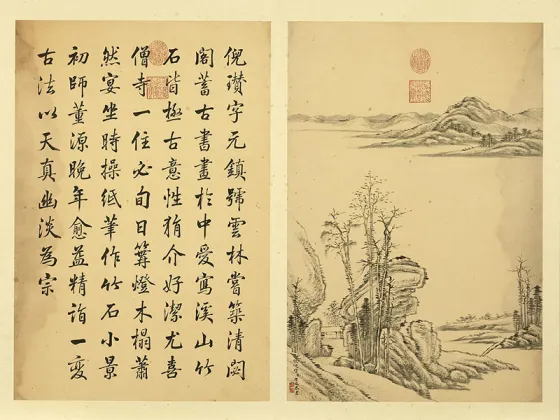 倪瓚字元鎮號雲林嘗築清閟
閣蓄古書畫於中愛寫溪山竹
石皆極古意性狷介好潔尤喜
僧寺一住必旬日篝燈木榻蕭
然宴坐時操紙筆作竹石小景
初師董源晚年愈益精詣一變
古法以天真幽淡為宗